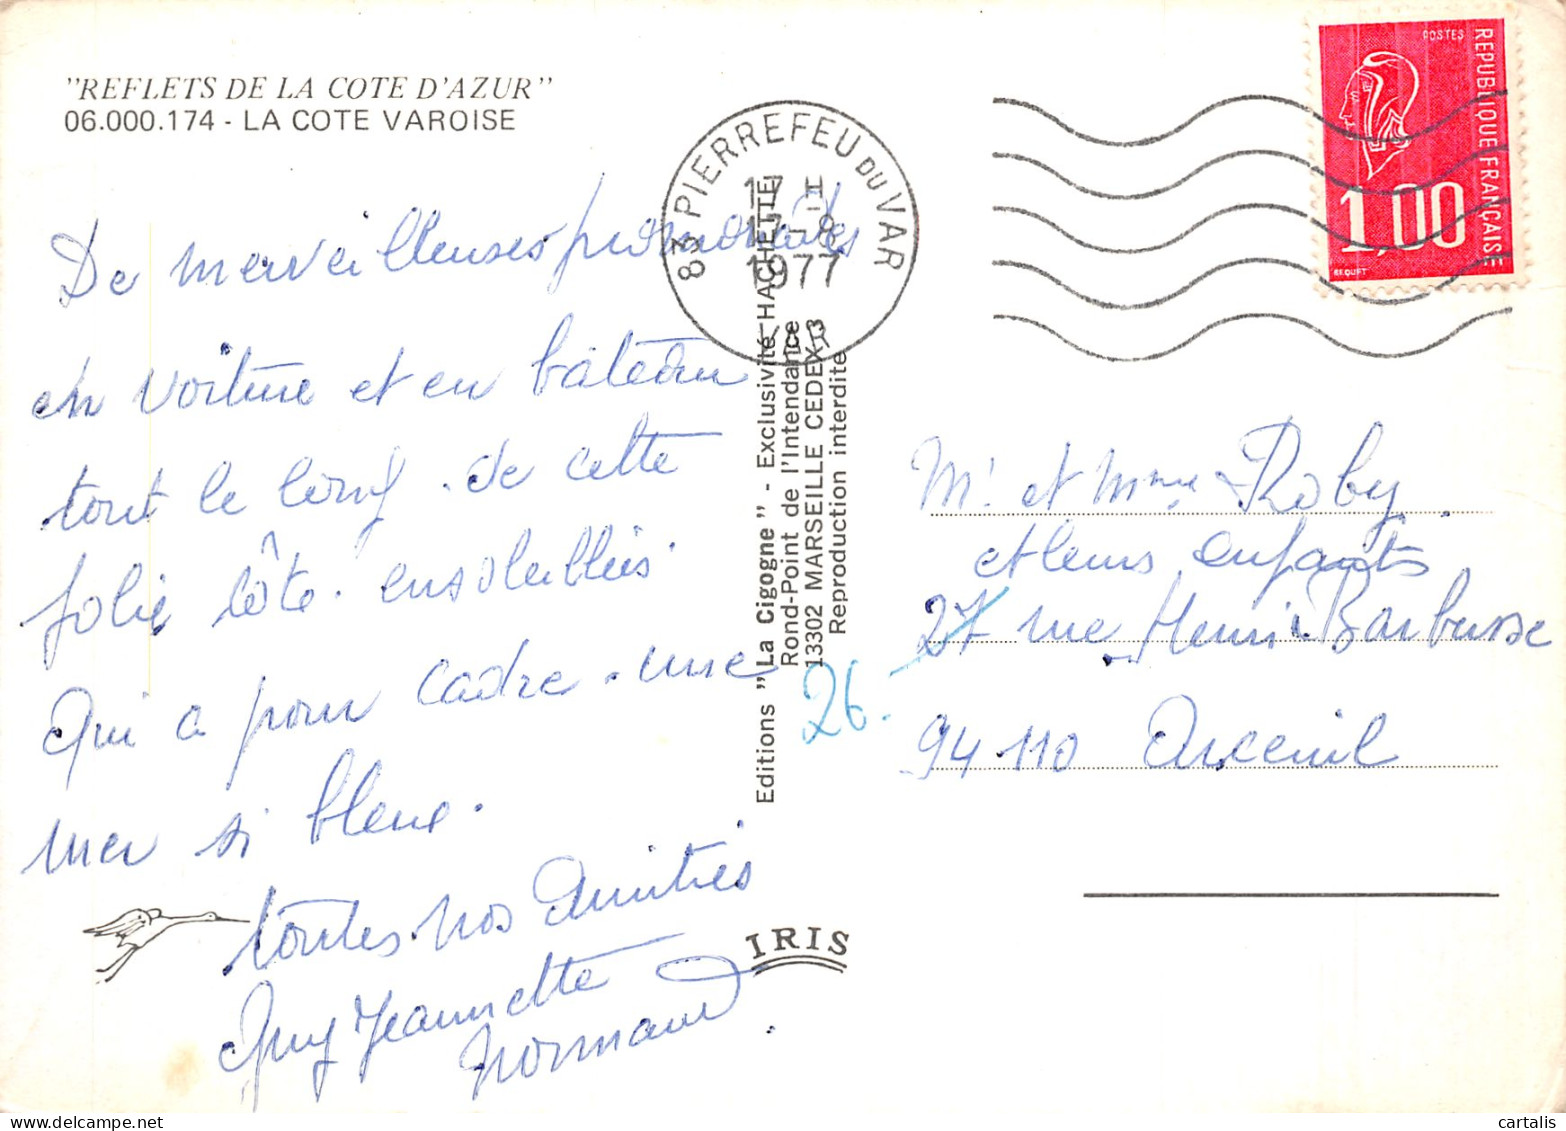 "REFLETS DE LA COTE D'AZUR"
06.000.174 - LA COTE VAROISE
De merveilleuses promenades
en voiture et en bâteau
tout le long de cette
jolie côte ensoleillées
qui a pour cadre une
mer si bleue.
toutes nos Amitiés
Guy Jeannette
Normand
Editions "La Cigogne" - Exclusivité HACHETTE
Rond-Point de l'Intendance
13302 MARSEILLE CEDEX 3
Reproduction interdite
IRIS
83 PIERREFEU DU VAR
17 H
17 - 8
1977
VAR
POSTES
REPUBLIQUE FRANÇAISE
1,00
BEQUET
Mr et Mme Roby
et leurs enfants
27 rue Henri Barbusse
26.
94 110 Arceuil
cartalis